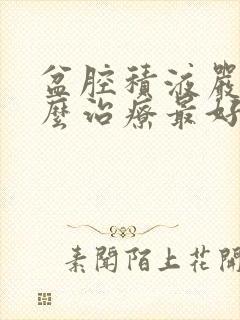 盆腔積液嚴
麼治療最好
素聞陌上花開